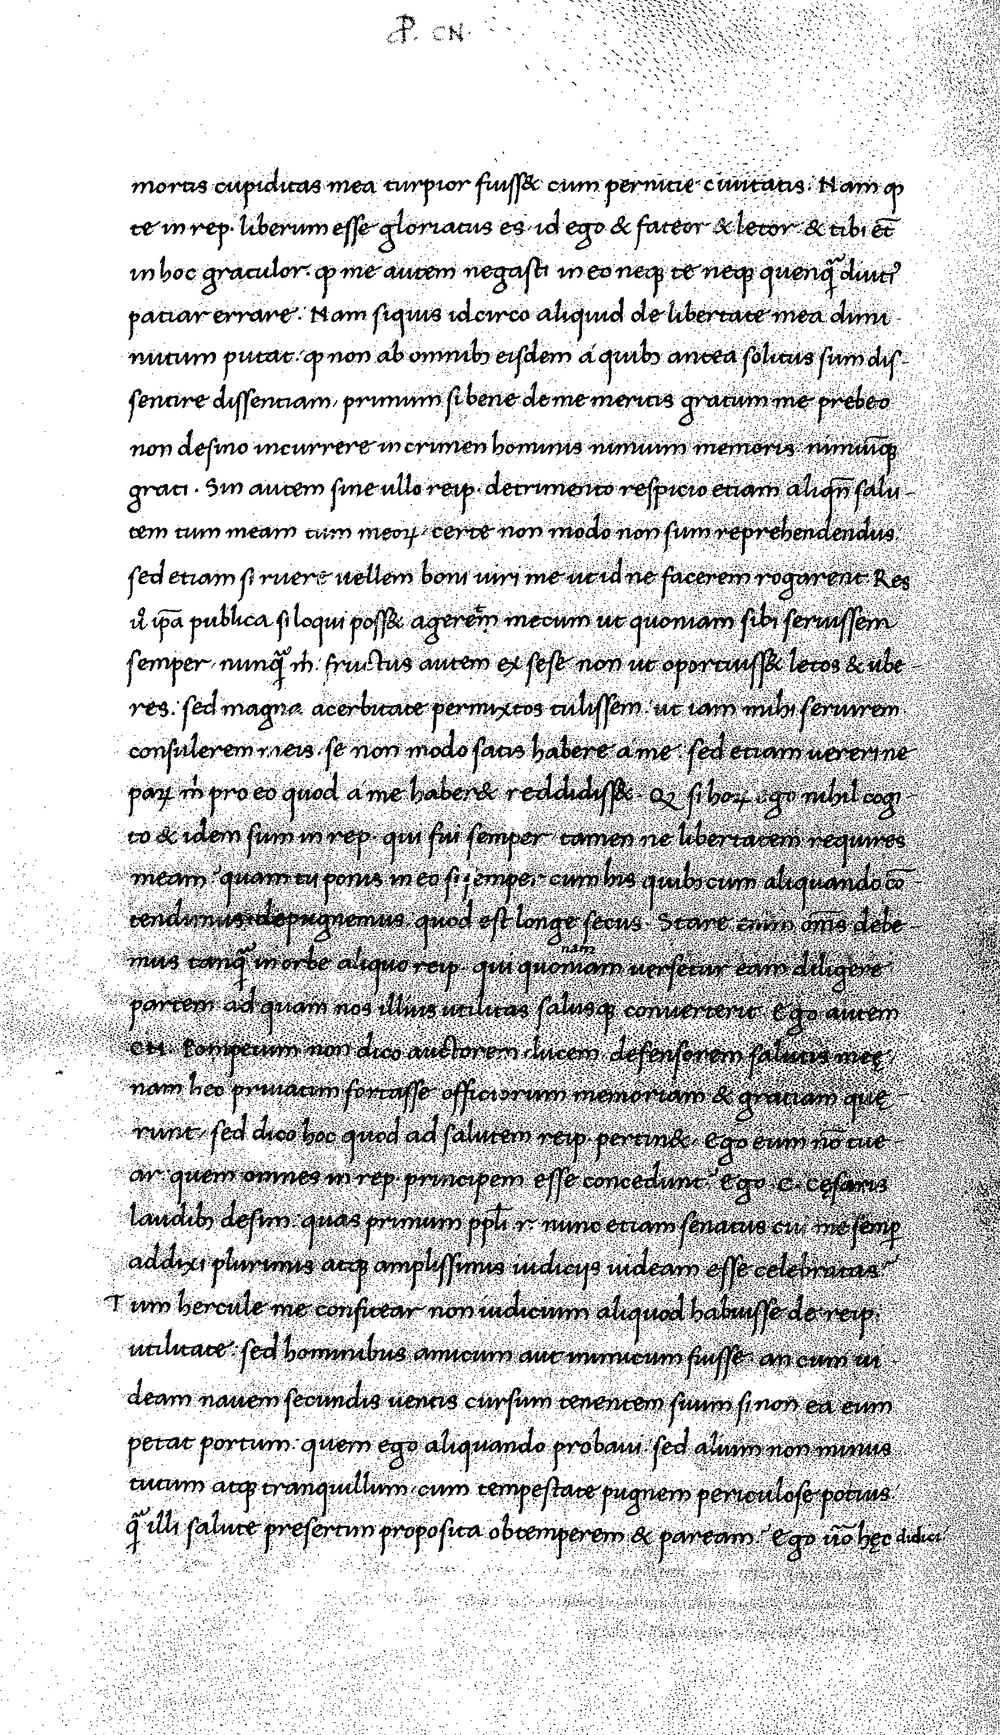 P. CN.
mortis cupiditas mea turpior fuiss& cum pernicie ciuitatis. Nam ꝙ
te in rep. liberum esse gloriatus es. id ego & fateor & letor. & tibi et̄
in hoc gratulor. ꝙ me autem negasti in eo neqꝫ te neqꝫ quenq̄ȝ diuti᾽
patiar errare. Nam siquis idcirco aliquid de libertate mea dimi-
nutum putat. ꝙ non ab omnibꝫ eisdem a quibꝫ antea solitus sum dis-
sentire dissentiam, primum si bene de me meritis gratum me prebeo
non desino incurrere in crimen hominis nimium memoris nimiūqꝫ
grati. Sin autem sine ullo reip. detrimento respicio etiam aliqn̄ salu-
tem tum meam tum meoꝝ, certe non modo non sum reprehendendus.
sed etiam si ruere uellem boni uiri me ut id ne facerem rogarent. Res
ů ip̄a publica si loqui poss& ageret mecum ut quoniam sibi seruissem
semper, nunq̄ȝ m̊. fructus autem ex sese non ut oportuiss& letos & ube-
res. sed magna acerbitate permixtos tulissem. ut iam mihi seruirem
consulerem meis. se non modo satis habere a me. sed etiam uereri ne
paꝝ m̊ pro eo quod a me haber& reddidiss&. Qꝫ si hoꝝ ego nihil cogi-
to & idem sum in rep. qui fui semper. tamen ne libertatem requires
meam. quam tu ponis in eo si semper cum his quibꝫcum aliquando cō-
tendimus depugnemus. quod est longe secus. Stare enim om̄s debe-
mus tanq̄ȝ in orbe aliquo reip. qui quoniam uersetur eam diligere
nam
partem ad quam nos illius utilitas salusqꝫ conuerterit. Ego autem
CN. Pompeium non dico auctorem ducem defensorem salutis meę
nam hec priuatim fortasse officiorum memoriam & gratiam quę-
runt, sed dico hoc quod ad salutem reip. pertin&. Ego eum nō tue-
ar quem omnes in rep. principem esse concedunt. Ego. C. Cęsaris
laudibꝫ desim. quas primum ppl̄i r. nunc etiam senatus cui me semp̄
addixi plurimis atqꝫ amplissimis iudicijs uideam esse celebratas.
Tum hercule me confitear non iudicium aliquod habuisse de reip.
utilitate. sed hominibus amicum aut inimicum fuisse. an cum ui-
deam nauem secundis uentis cursum tenentem suum si non ea eum
petat portum. quem ego aliquando probaui. sed alium non minus
tutum atqꝫ tranquillum, cum tempestate pugnem periculose potius
q̄ȝ illi salute presertim proposita obtemperem & paream. Ego u̅o hęc didici